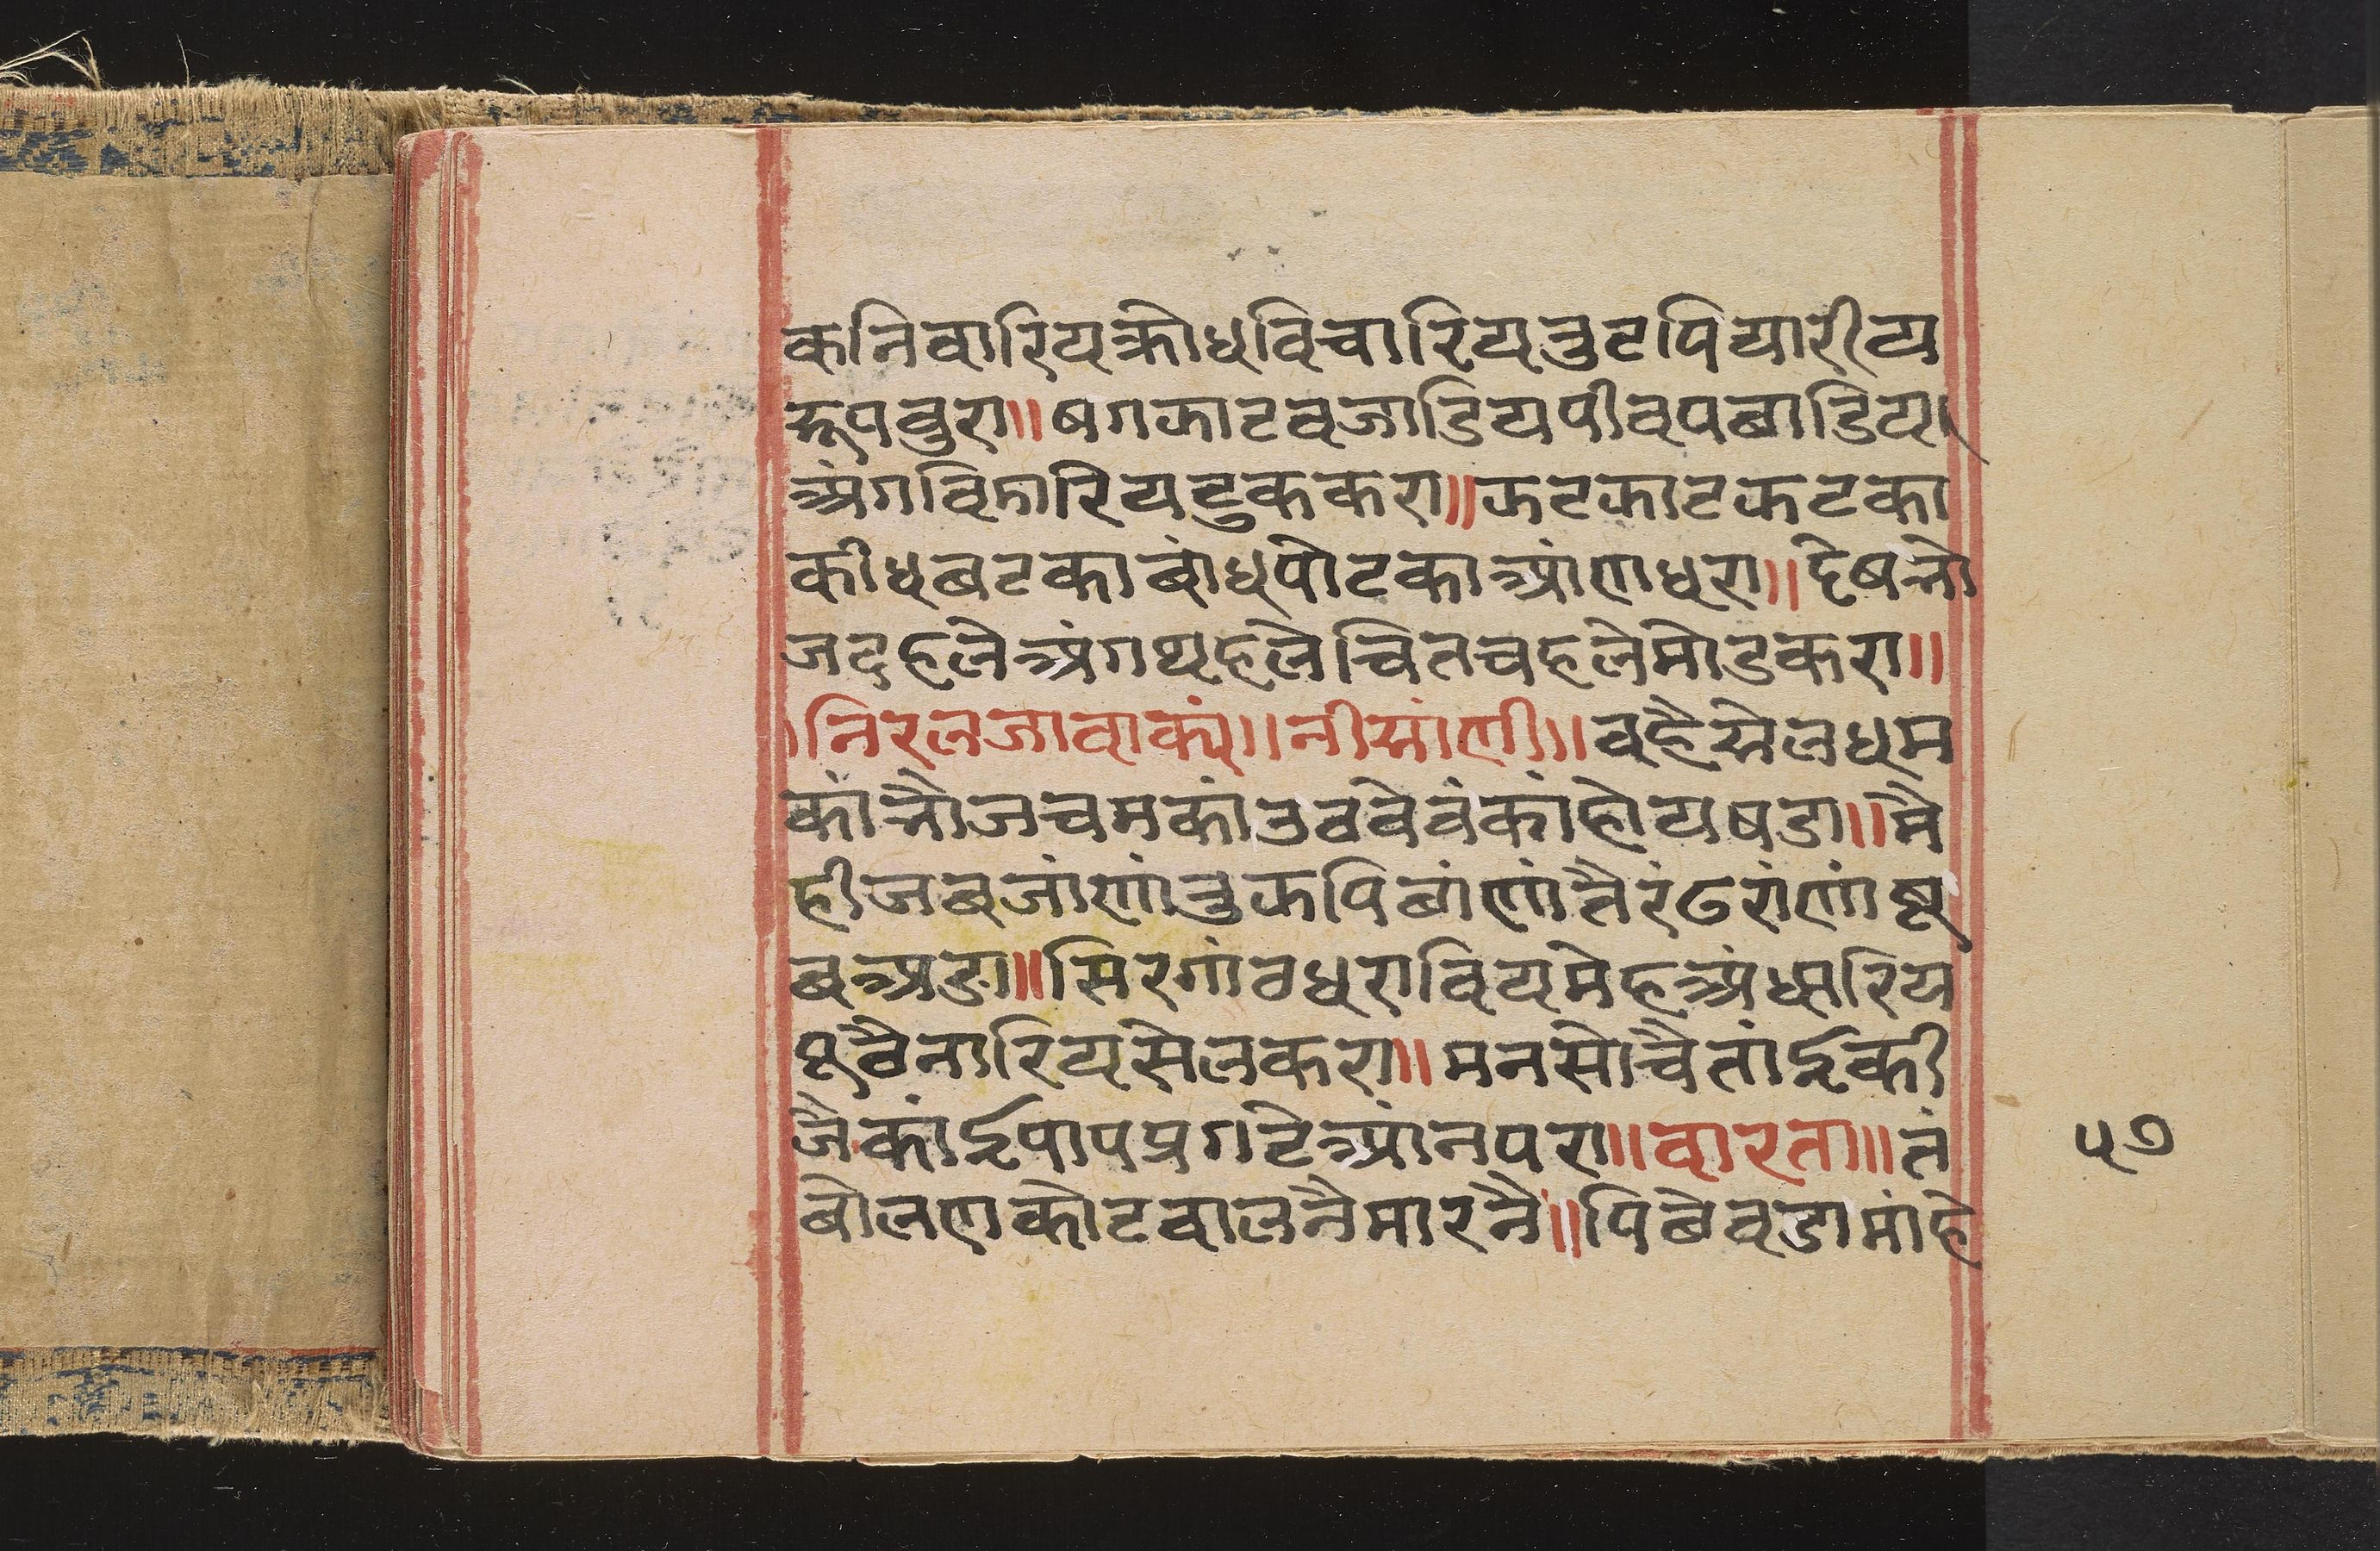 कनिवारियक्रोधविचारियत्रुटपियारीय
रूपवुरा॥षगकाटवजाडियपीवपबाडिय
अंगविदारियटुककरा॥कटकाटकटका
कीधबटकाबांधपोटकाआंणधरा॥देषत्नो
जदहलेअंगथहलेचितचहलेमोडकरा॥
निरलजावाक्यं॥नीसांणी॥वहैसेलधम
कांनौजचमकांउववेवंकांहोयषडा॥मै
हीजबजांणांनुकपिबांणांनैरंढरांणां
बअडा॥सिरगांवधरावियमेहअंधारिय
वैनारियसेलकरा॥मनसोचैतांईकी
जैकांईपापप्रगटेआंनपरा॥वारता॥तं
बोलणकोटवालनैमारनै॥पिबैवडामांहे
५७